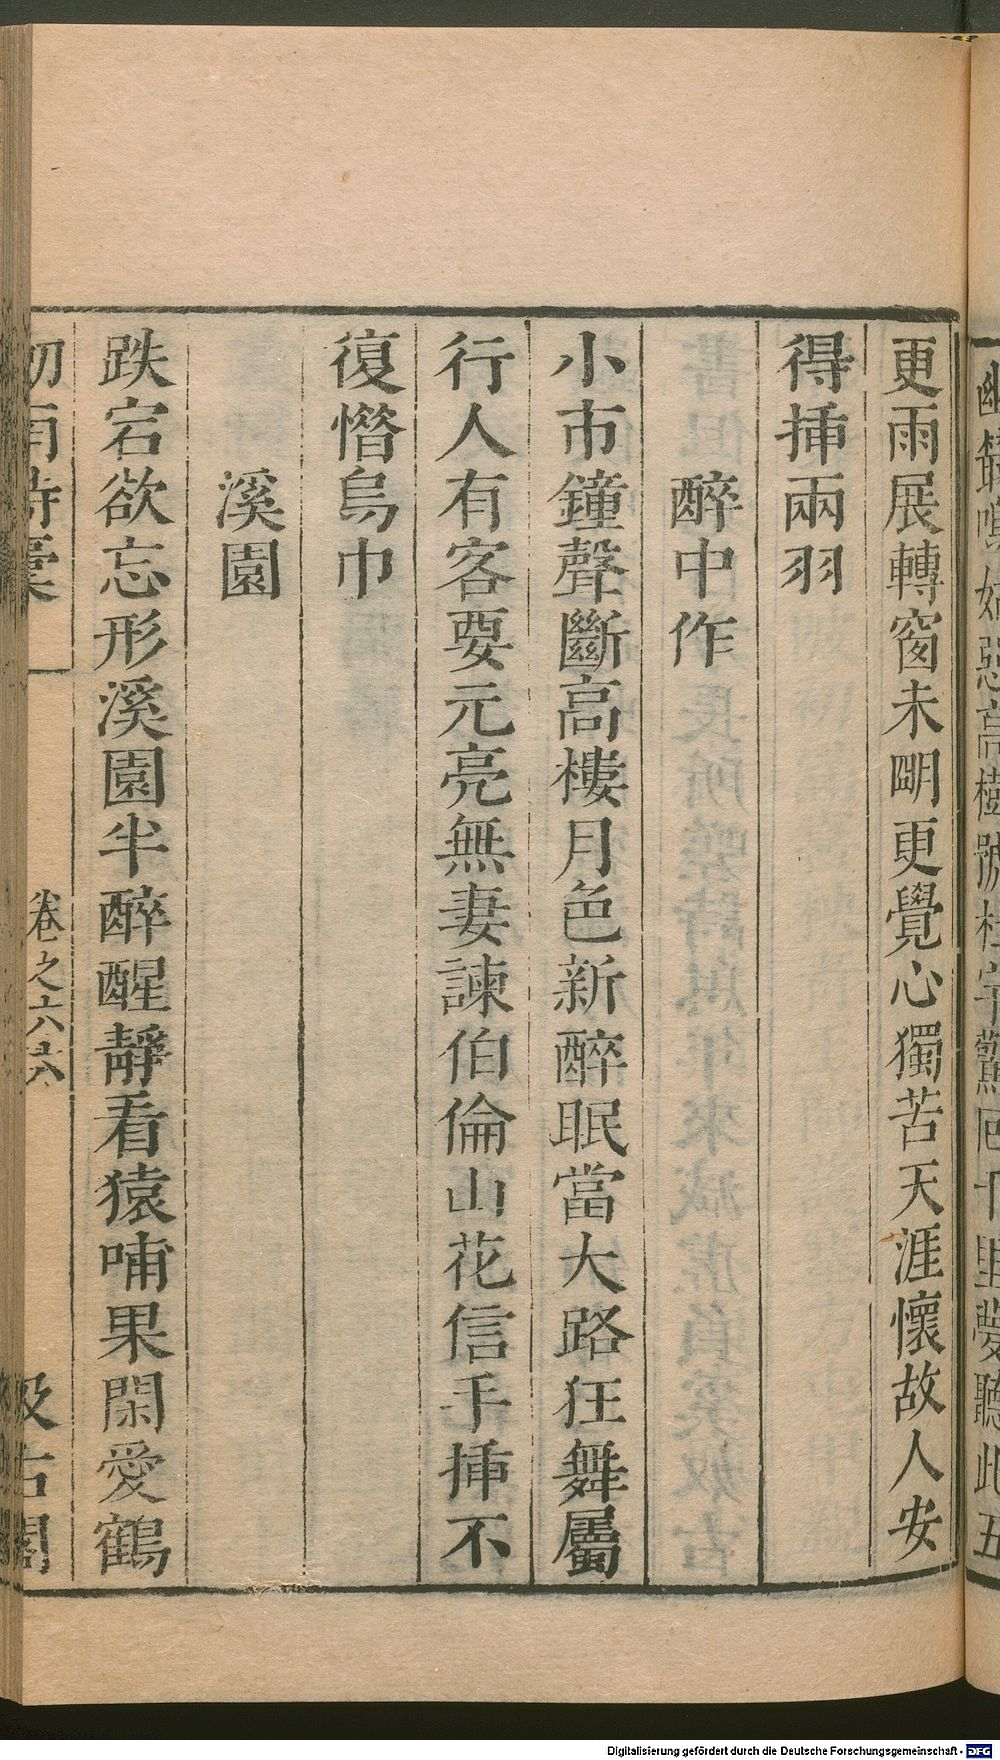 更雨展轉窗未明更覺心獨苦天涯懷故人安
得揷兩羽
醉中作
小市鐘聲斷高樓月色新醉眠當大路狂舞屬
行人有客要元亮無妻諫伯倫山花信手揷不
復憯烏巾
溪園
跌宕欲忘形溪園半醉醒靜看猿哺果閑愛鶴
卷之六
汲古閣
Digitalisierung gefördert durch die Deutsche Forschungsgemeinschaft - DFG